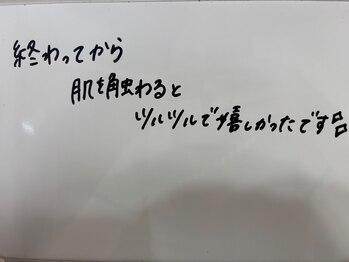 終わってから
肌を触わると
ツルツルで嬉しかったです